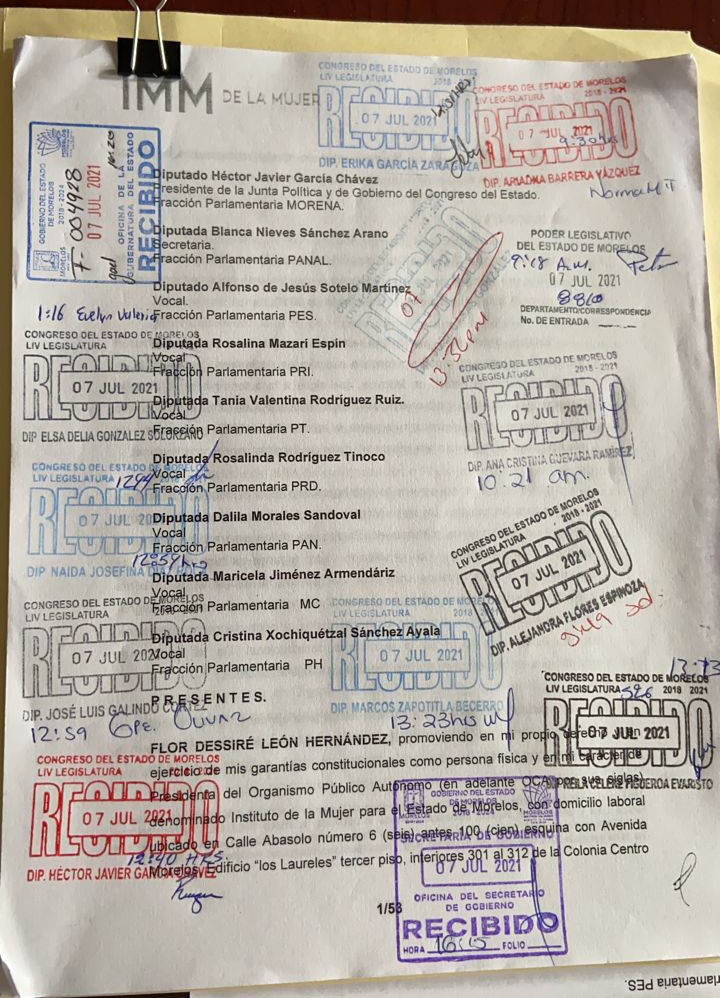 IMM DE LA MUJER
CONGRESO DEL ESTADO DE MORELOS
LIV LEGISLATURA 2018 - 2021
RECIBIDO
07 JUL 2021
DIP. ERIKA GARCÍA ZARAGOZA
CONGRESO DEL ESTADO DE MORELOS
LIV LEGISLATURA 2018 - 2021
RECIBIDO
07 JUL 2021
9:30
DIP. ARIADNA BARRERA VÁZQUEZ
Norma M T
GOBIERNO DEL ESTADO
DE MORELOS
2018 - 2024
F 004928
07 JUL 2021
OFICINA DE LA
GUBERNATURA DEL ESTADO
RECIBIDO
Diputado Héctor Javier García Chávez
Presidente de la Junta Política y de Gobierno del Congreso del Estado.
Fracción Parlamentaria MORENA.
Diputada Blanca Nieves Sánchez Arano
Secretaria.
Fracción Parlamentaria PANAL.
PODER LEGISLATIVO
DEL ESTADO DE MORELOS
9:18 A.m.
07 JUL 2021
8810
DEPARTAMENTO/CORRESPONDENCIA
No. DE ENTRADA
Diputado Alfonso de Jesús Sotelo Martínez
Vocal.
Fracción Parlamentaria PES.
1:16 Evelyn Valeria
Diputada Rosalina Mazari Espin
Vocal
Fracción Parlamentaria PRI.
CONGRESO DEL ESTADO DE MORELOS
LIV LEGISLATURA
RECIBIDO
07 JUL 2021
DIP. ELSA DELIA GONZALEZ SOLORZANO
CONGRESO DEL ESTADO DE MORELOS
LIV LEGISLATURA 2018 - 2021
RECIBIDO
07 JUL 2021
DIP. ANA CRISTINA GUEVARA RAMIREZ
10:21 am.
Diputada Tania Valentina Rodríguez Ruiz.
Vocal
Fracción Parlamentaria PT.
Diputada Rosalinda Rodríguez Tinoco
Vocal
Fracción Parlamentaria PRD.
CONGRESO DEL ESTADO DE MORELOS
LIV LEGISLATURA
RECIBIDO
07 JUL 20
DIP. NAIDA JOSEFINA
Diputada Dalila Morales Sandoval
Vocal
Fracción Parlamentaria PAN.
CONGRESO DEL ESTADO DE MORELOS
LIV LEGISLATURA 2018 - 2021
RECIBIDO
07 JUL 2021
DIP. ALEJANDRA FLORES ESPINOZA
Diputada Maricela Jiménez Armendáriz
Vocal
Fracción Parlamentaria MC
Diputada Cristina Xochiquétzal Sánchez Ayala
Vocal
Fracción Parlamentaria PH
CONGRESO DEL ESTADO DE MORELOS
LIV LEGISLATURA
RECIBIDO
07 JUL 202
DIP. JOSÉ LUIS GALINDO CORTEZ
12:59 Gpe.
CONGRESO DEL ESTADO DE MORELOS
LIV LEGISLATURA 2018
RECIBIDO
07 JUL 2021
DIP. MARCOS ZAPOTITLA BECERRO
13:23hrs
P R E S E N T E S.
13:13
CONGRESO DEL ESTADO DE MORELOS
LIV LEGISLATURA 2018 2021
RECIBIDO
07 JUL 2021
FIGUEROA EVARISTO
FLOR DESSIRÉ LEÓN HERNÁNDEZ, promoviendo en mi propio derecho en
ejercicio de mis garantías constitucionales como persona física y en mi carácter de
Presidenta del Organismo Público Autónomo (en adelante OCA por sus siglas)
denominado Instituto de la Mujer para el Estado de Morelos, con domicilio laboral
ubicado en Calle Abasolo número 6 (seis) antes 100 (cien) esquina con Avenida
Morelos, Edificio “los Laureles” tercer piso, interiores 301 al 312 de la Colonia Centro
CONGRESO DEL ESTADO DE MORELOS
LIV LEGISLATURA
RECIBIDO
07 JUL 2021
12:40 HRS.
DIP. HÉCTOR JAVIER GARCÍA CHÁVEZ
GOBIERNO DEL ESTADO
DE MORELOS
SECRETARIA DE GOBIERNO
07 JUL 2021
OFICINA DEL SECRETARIO
DE GOBIERNO
RECIBIDO
HORA FOLIO
1/53
rlamentaria PES.